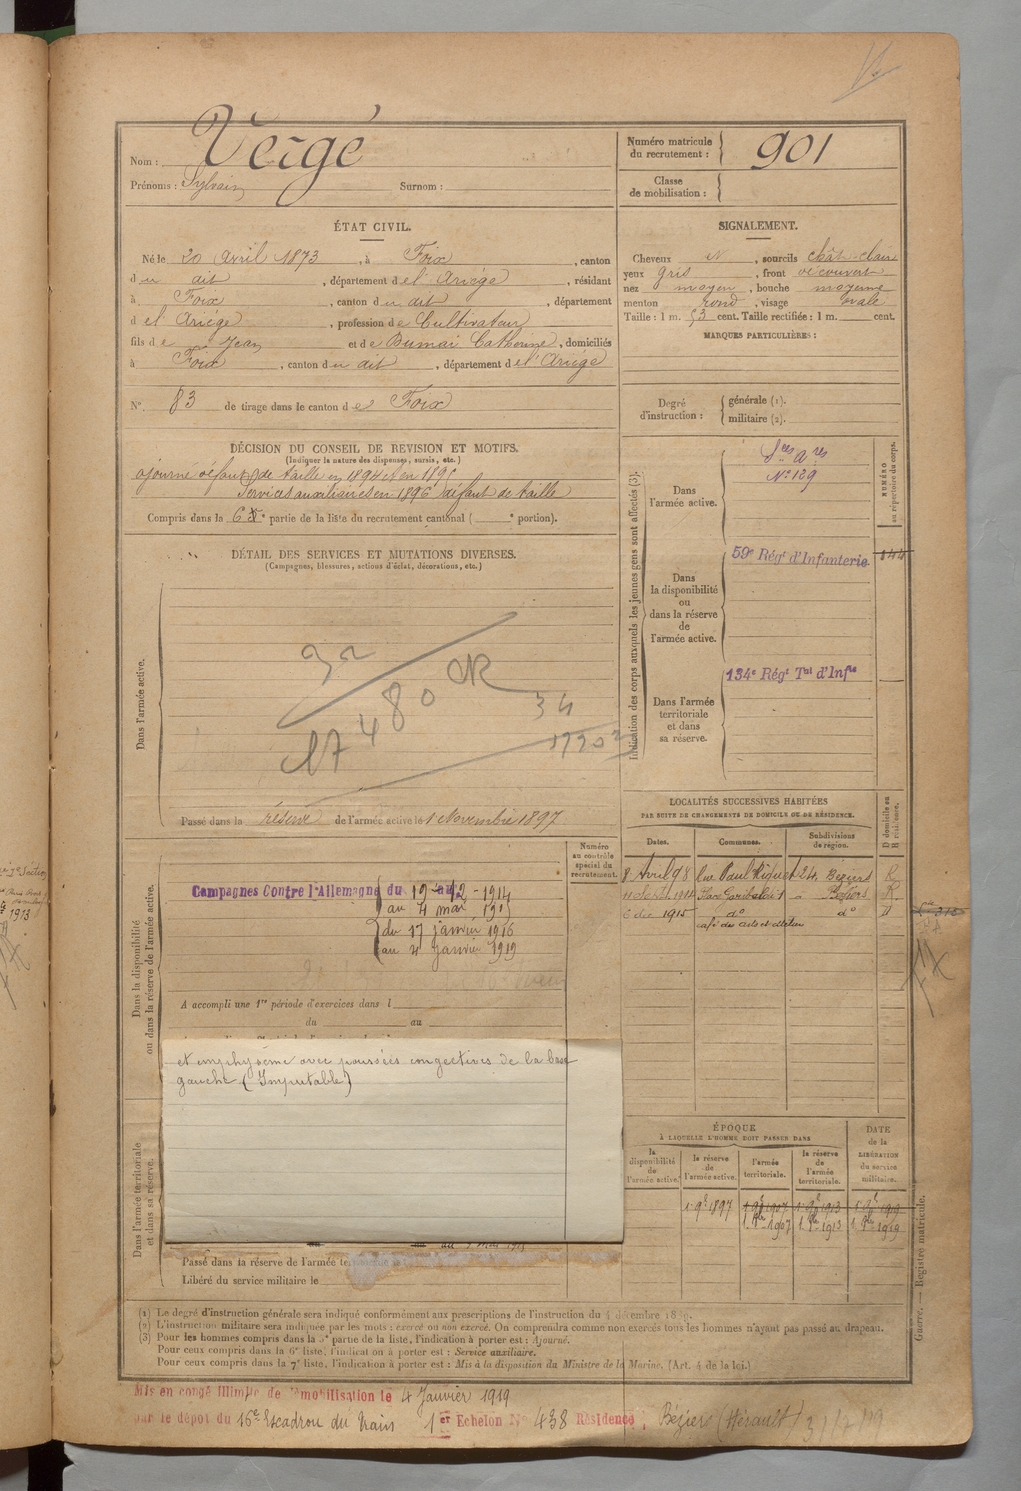 Nom : Vergé
Prénoms : Sylvain Surnom :
Numéro matricule du recrutement : 901
Classe de mobilisation :
ÉTAT CIVIL.
Né le 20 Avril 1873, à Foix, canton
du dit, département de l'Ariége, résidant
à Foix, canton du dit, département
de l'Ariége, profession de Cultivateur
fils de Jean et de Dumai Catherine, domiciliés
à Foix, canton du dit, département de l'Ariége
N° 83 de tirage dans le canton de Foix
SIGNALEMENT.
Cheveux et, sourcils chât-clairs
yeux gris, front découvert
nez moyen, bouche moyenne
menton rond, visage ovale
Taille : 1 m. 53 cent. Taille rectifiée : 1 m. cent.
MARQUES PARTICULIÈRES :
Degré d'instruction : générale (1).
militaire (2).
DÉCISION DU CONSEIL DE REVISION ET MOTIFS.
(Indiquer la nature des dispenses, sursis, etc.)
ajourné défaut de taille en 1894 et en 1895
Services auxiliaires en 1896 défaut de taille
Compris dans la 6e partie de la liste du recrutement cantonal ( e portion).
DÉTAIL DES SERVICES ET MUTATIONS DIVERSES.
(Campagnes, blessures, actions d'éclat, décorations, etc.)
Dans l'armée active.
32
17480
34
Passé dans la réserve de l'armée active le 1 Novembre 1897
Indication des corps auxquels les jeunes gens sont affectés (3).
NUMÉRO au répertoire du corps.
Dans l'armée active.
Sces Ares
N° 129
Dans la disponibilité ou dans la réserve de l'armée active.
59e Régt d'Infanterie
844
Dans l'armée territoriale et dans sa réserve.
134e Régt Tal d'Infie
LOCALITÉS SUCCESSIVES HABITÉES
PAR SUITE DE CHANGEMENTS DE DOMICILE OU DE RÉSIDENCE.
Dates. Communes. Subdivisions de région. D domicile ou R résidence.
8 Avril 98 rue Paul Riquet 24. Béziers R
11 Sept. 1914 Place Garibaldi 1 Béziers R
6 déc 1915 do do D
café des arts et
Dans la disponibilité ou dans la réserve de l'armée active.
Numéro au contrôle spécial du recrutement.
Campagnes Contre l'Allemagne du 19-12-1914
au 4 mai 1915
du 17 janvier 1916
au 4 janvier 1919
A accompli une 1re période d'exercices dans l
du au
et emphysème avec poussées congestives de la base
gauche (Imputable)
Dans l'armée territoriale et dans sa réserve.
Passé dans la réserve de l'armée te
Libéré du service militaire le
ÉPOQUE
À LAQUELLE L'HOMME DOIT PASSER DANS
DATE de la LIBÉRATION du service militaire.
la disponibilité de l'armée active. la réserve de l'armée active. l'armée territoriale. la réserve de l'armée territoriale.
1 9bre 1897 1 9bre 1907 1 9bre 1913 1 9bre 1919
1. 8bre 1907 1. 8bre 1913 1. 8bre 1919
Guerre. — Registre matricule.
(1) Le degré d'instruction générale sera indiqué conformément aux prescriptions de l'instruction du 4 décembre 1889.
(2) L'instruction militaire sera indiquée par les mots : exercé ou non exercé. On comprendra comme non exercés tous les hommes n'ayant pas passé au drapeau.
(3) Pour les hommes compris dans la 5e partie de la liste, l'indication à porter est : Ajourné.
Pour ceux compris dans la 6e liste, l'indication à porter est : Service auxiliaire.
Pour ceux compris dans la 7e liste, l'indication à porter est : Mis à la disposition du Ministre de la Marine. (Art. 4 de la loi.)
Mis en congé illimité de démobilisation le 4 Janvier 1919
par le dépôt du 16e Escadron du train 1er Echelon N° 438 Résidence : Bézier (Hérault) 31/7/19